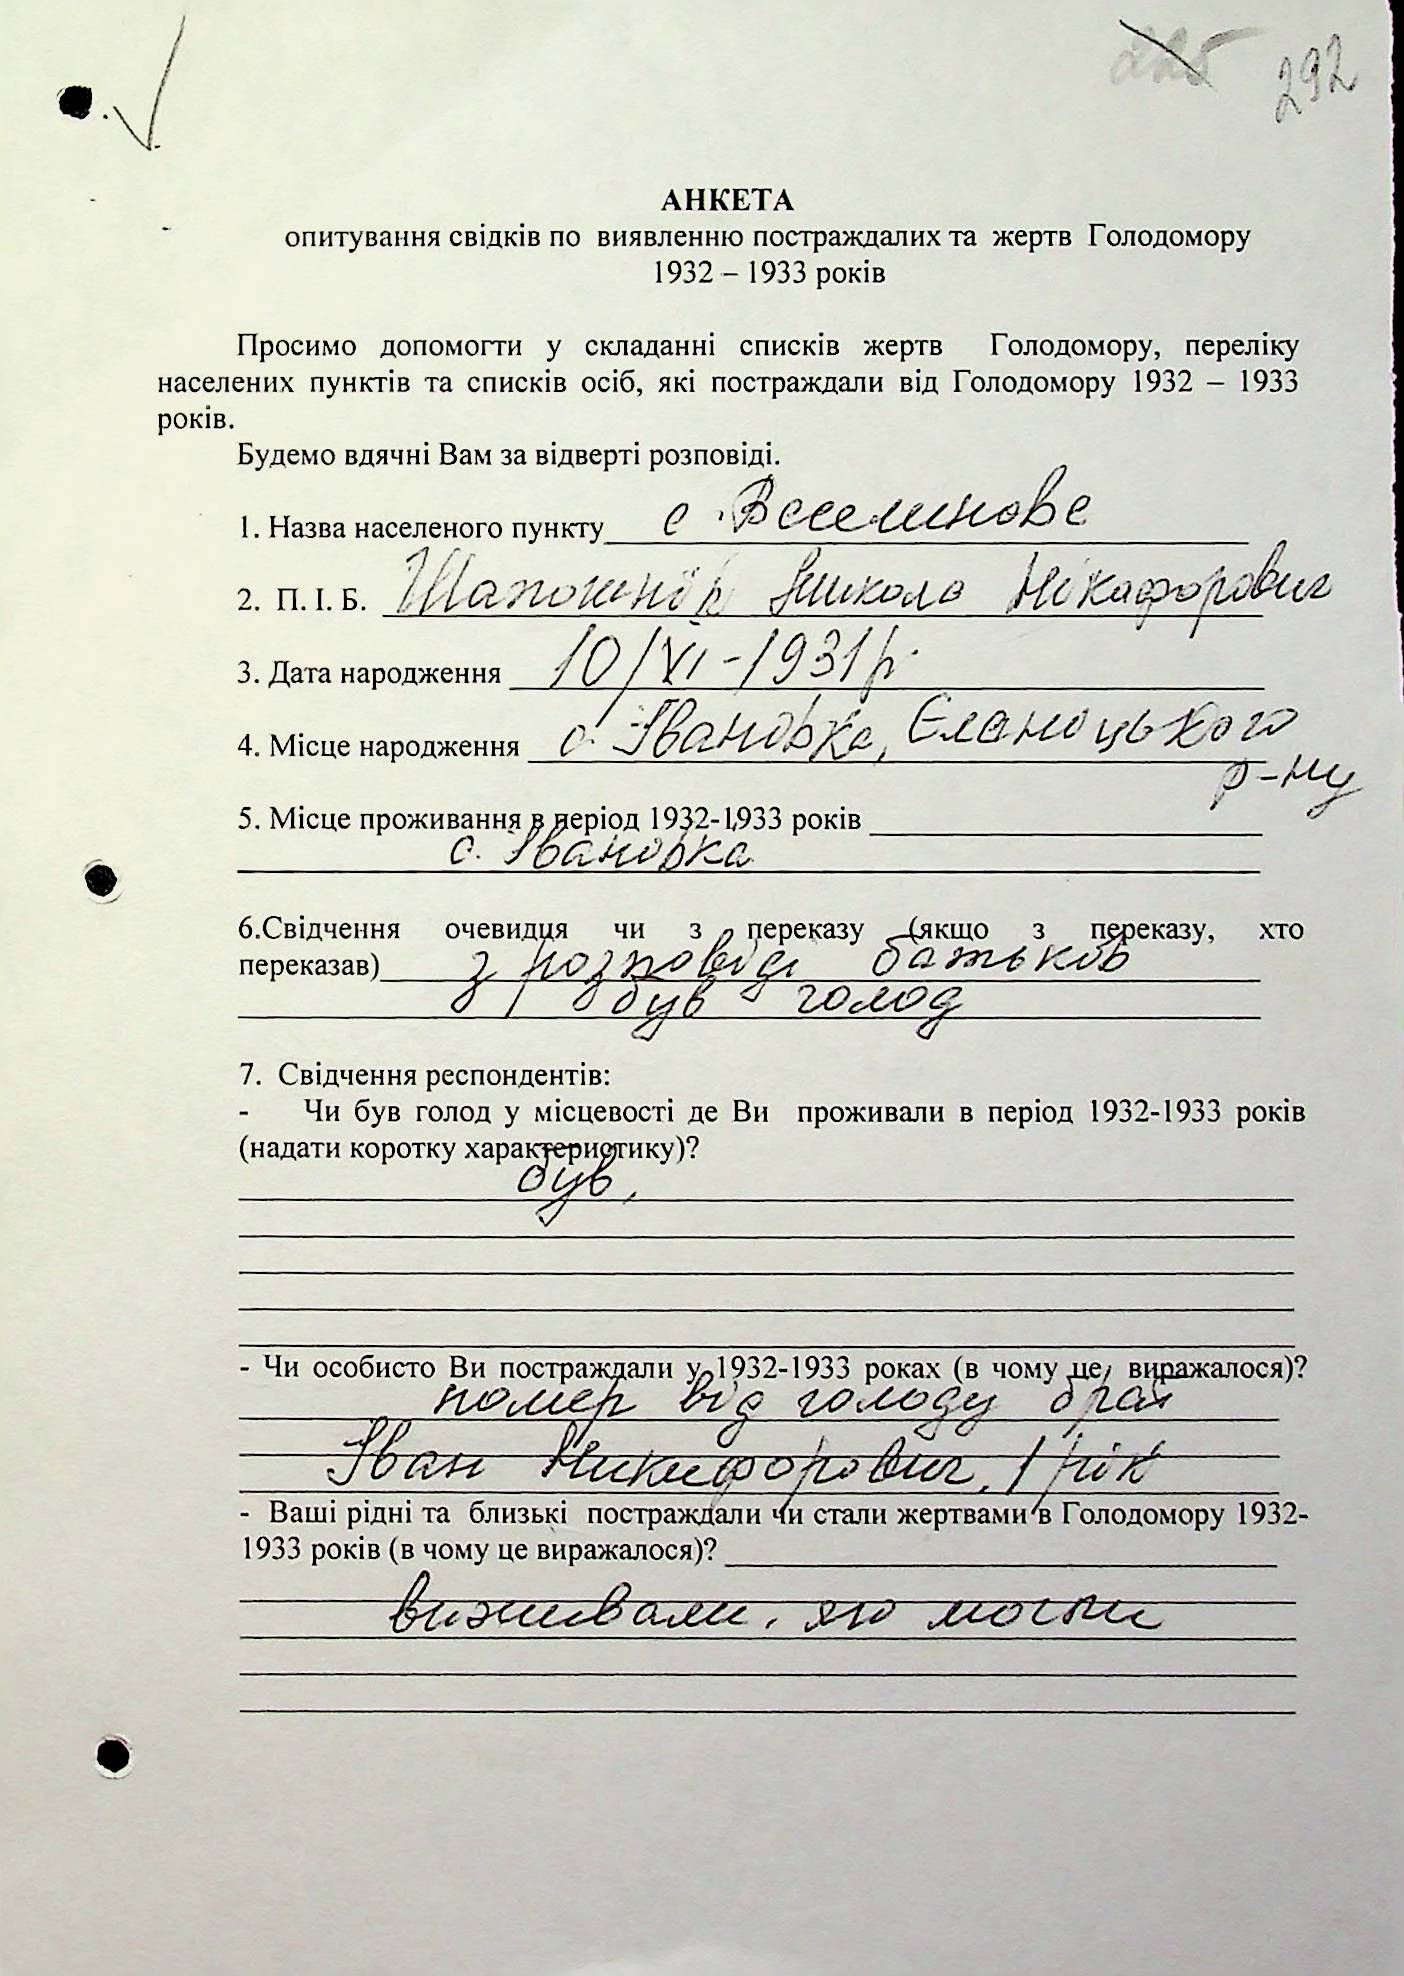 225 292
АНКЕТА
опитування свідків по виявленню постраждалих та жертв Голодомору
1932 – 1933 років
Просимо допомогти у складанні списків жертв Голодомору, переліку
населених пунктів та списків осіб, які постраждали від Голодомору 1932 – 1933
років.
Будемо вдячні Вам за відверті розповіді.
1. Назва населеного пункту с.
2. П. І. Б. Микола Нікафорович
3. Дата народження 10/VI-1931р
4. Місце народження с. Івановка, Єланецького
р-ну
5. Місце проживання в період 1932-1933 років
с. Івановка
6.Свідчення очевидця чи з переказу (якщо з переказу, хто
переказав) з розповіді батьков
був голод
7. Свідчення респондентів:
- Чи був голод у місцевості де Ви проживали в період 1932-1933 років
(надати коротку характеристику)?
був,
- Чи особисто Ви постраждали у 1932-1933 роках (в чому це виражалося)?
помер від голоду брат
Іван Микифорович, 1 рік
- Ваші рідні та близькі постраждали чи стали жертвами в Голодомору 1932-
1933 років (в чому це виражалося)?
виживали, як могли